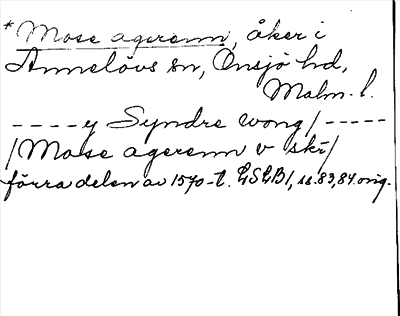 *Mose agerenn, åker i
Annelövs sn, Onsjö hd,
Malm. l.
----y Syndre wong/-----
/Mose agerenn v skr/
förra delen av 1570-t. LSLB1, ss. 83,84 orig.